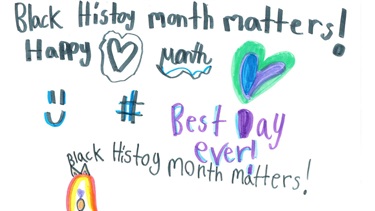 Black Histoy month matters!
Happy Month
#
Best Day
ever!
Black Histoy Month matters!